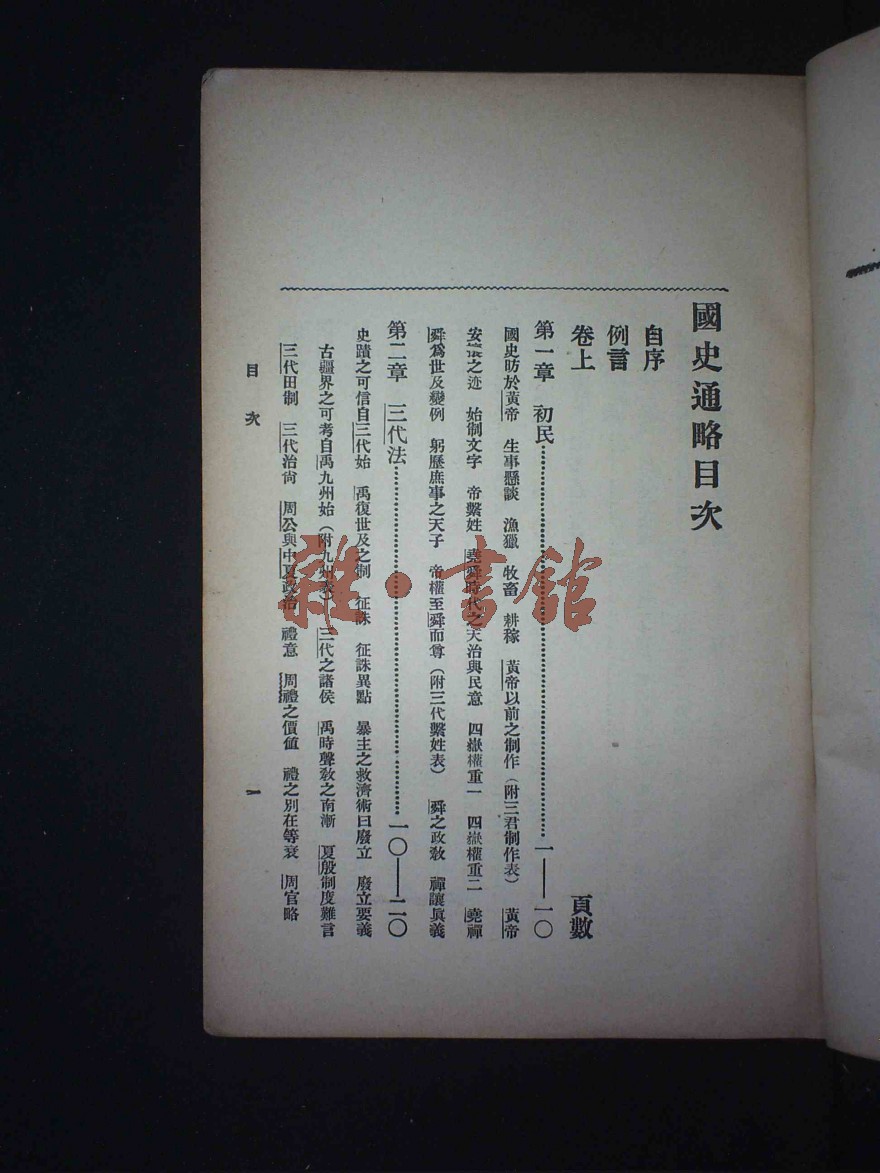 國史通略目次
自序
例言
卷上 頁數
第一章 初民…………一——一〇
國史昉於黃帝 生事懸談 漁獵 牧畜 耕稼 黃帝以前之制作(附三君制作表) 黃帝
安攘之迹 始制文字 帝繫姓 堯舜時代之天治與民意 四嶽權重一 四嶽權重二 堯禪
舜爲世及變例 躬歷庶事之天子 帝權至舜而尊(附三代繫姓表) 舜之政敎 禪讓眞義
第二章 三代法…………一〇——二〇
史蹟之可信自三代始 禹復世及之制 征誅 征誅異點 暴主之救濟術曰廢立 廢立要義
古疆界之可考自禹九州始(附九州表) 三代之諸侯 禹時聲敎之南漸 夏殷制度難言
三代田制 三代治尙 周公與中夏政治 禮意 周禮之價値 禮之別在等衰 周官略
目次
一
雜·書館